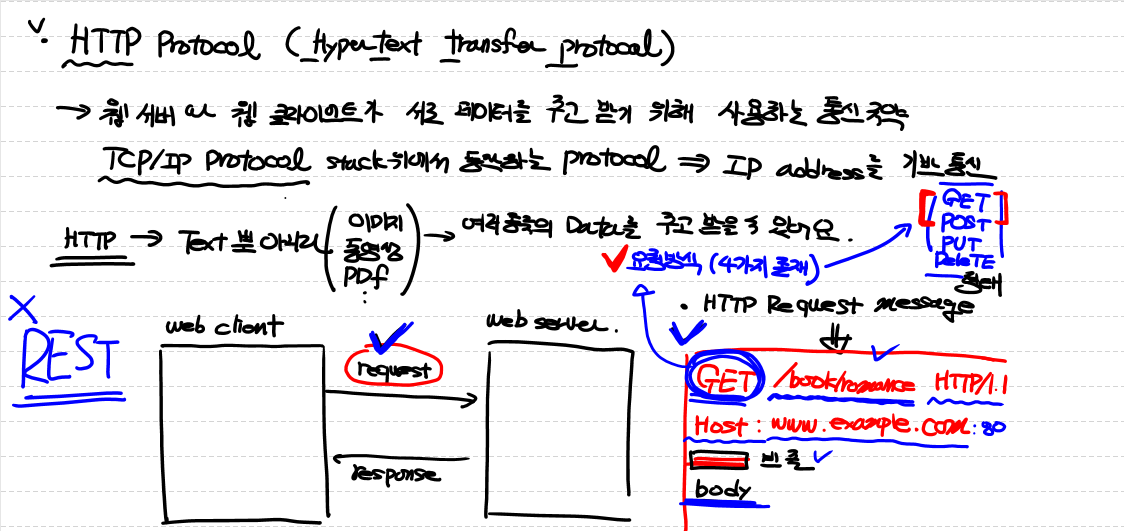 v. HTTP Protocol (Hypertext transfer protocol)
→ 웹 서버 와 웹 클라이언트가 서로 데이터를 주고 받기 위해 사용하는 통신규약
TCP/IP Protocol stack위에서 동작하는 protocol ⇒ IP address를 기반 통신
HTTP → Text 뿐 아니라 (이미지
동영상
PDf
:
) → 여러종류의 Data를 주고 받을 수 있어요.
✓ 요청방식 (4가지 존재)
GET
POST
PUT
DeleTE
형태
• HTTP Request message
X
REST
web client
request
response
web server.
GET /book/romance HTTP/1.1
Host : www.example.com:80
빈줄 ✓
body